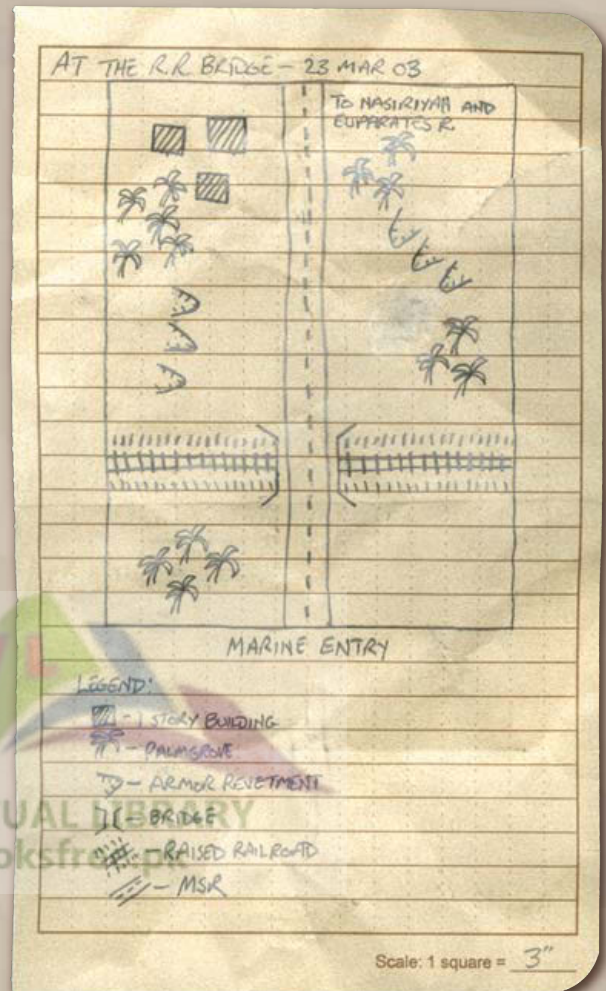 AT THE R.R. BRIDGE - 23 MAR 03
TO NASIRIYAH AND
EUPHRATES R.
MARINE ENTRY
LEGEND:
- 1 STORY BUILDING
- PALMGROVE
- ARMOR REVETMENT
- BRIDGE
- RAISED RAILROAD
- MSR
UAL LIBRARY
oksfree.pk
Scale: 1 square = 3"